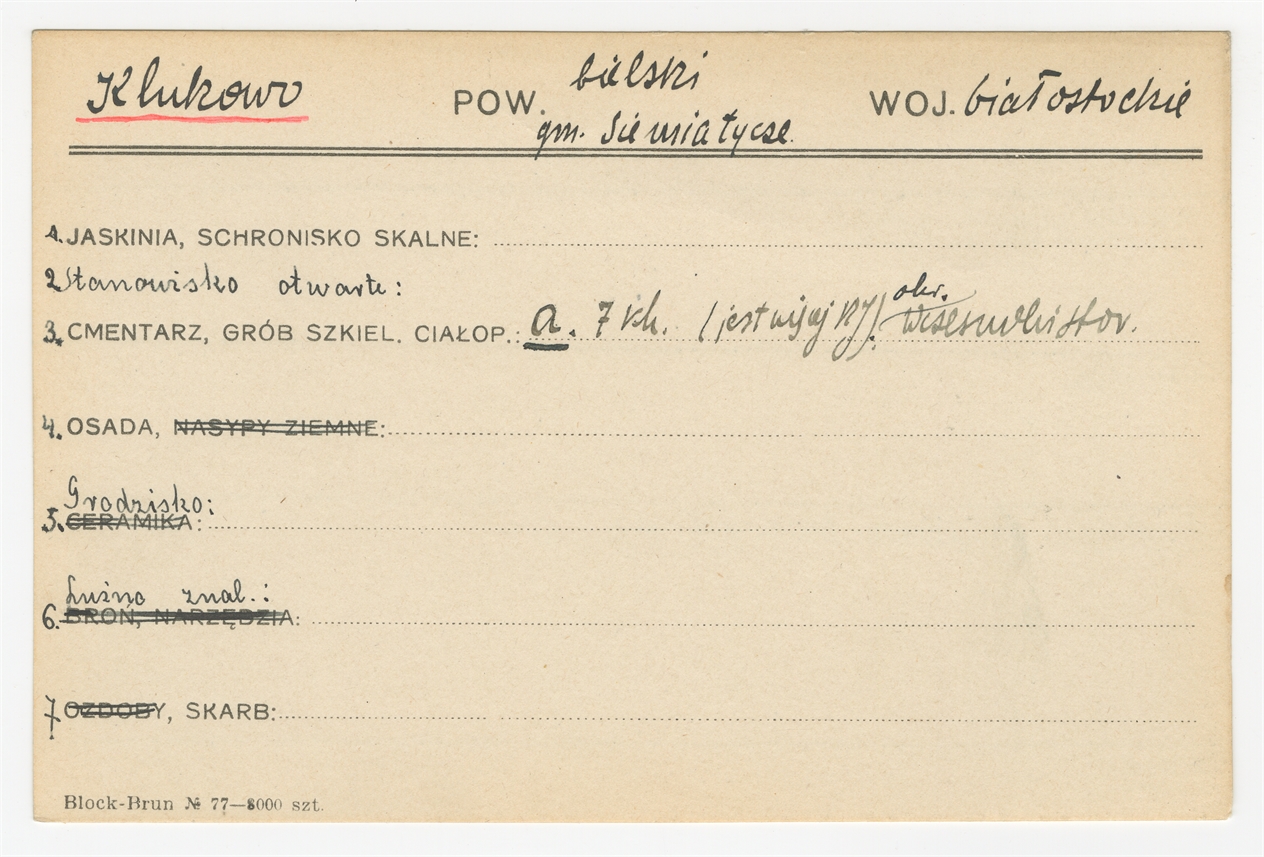 Klukowo POW. bielski WOJ. białostockie
gm. Siemiatycze
1. JASKINIA, SCHRONISKO SKALNE:
2 Stanowisko otwarte:
3. CMENTARZ, GRÓB SZKIEL. CIAŁOP.: a. 7 kh. (jest więcej okr.
4. OSADA, NASYPY ZIEMNE:
Grodzisko:
5. CERAMIKA:
Luźno znal.:
6. BROŃ, NARZĘDZIA:
7 OZDOBY, SKARB:
Block-Brun № 77—8000 szt.